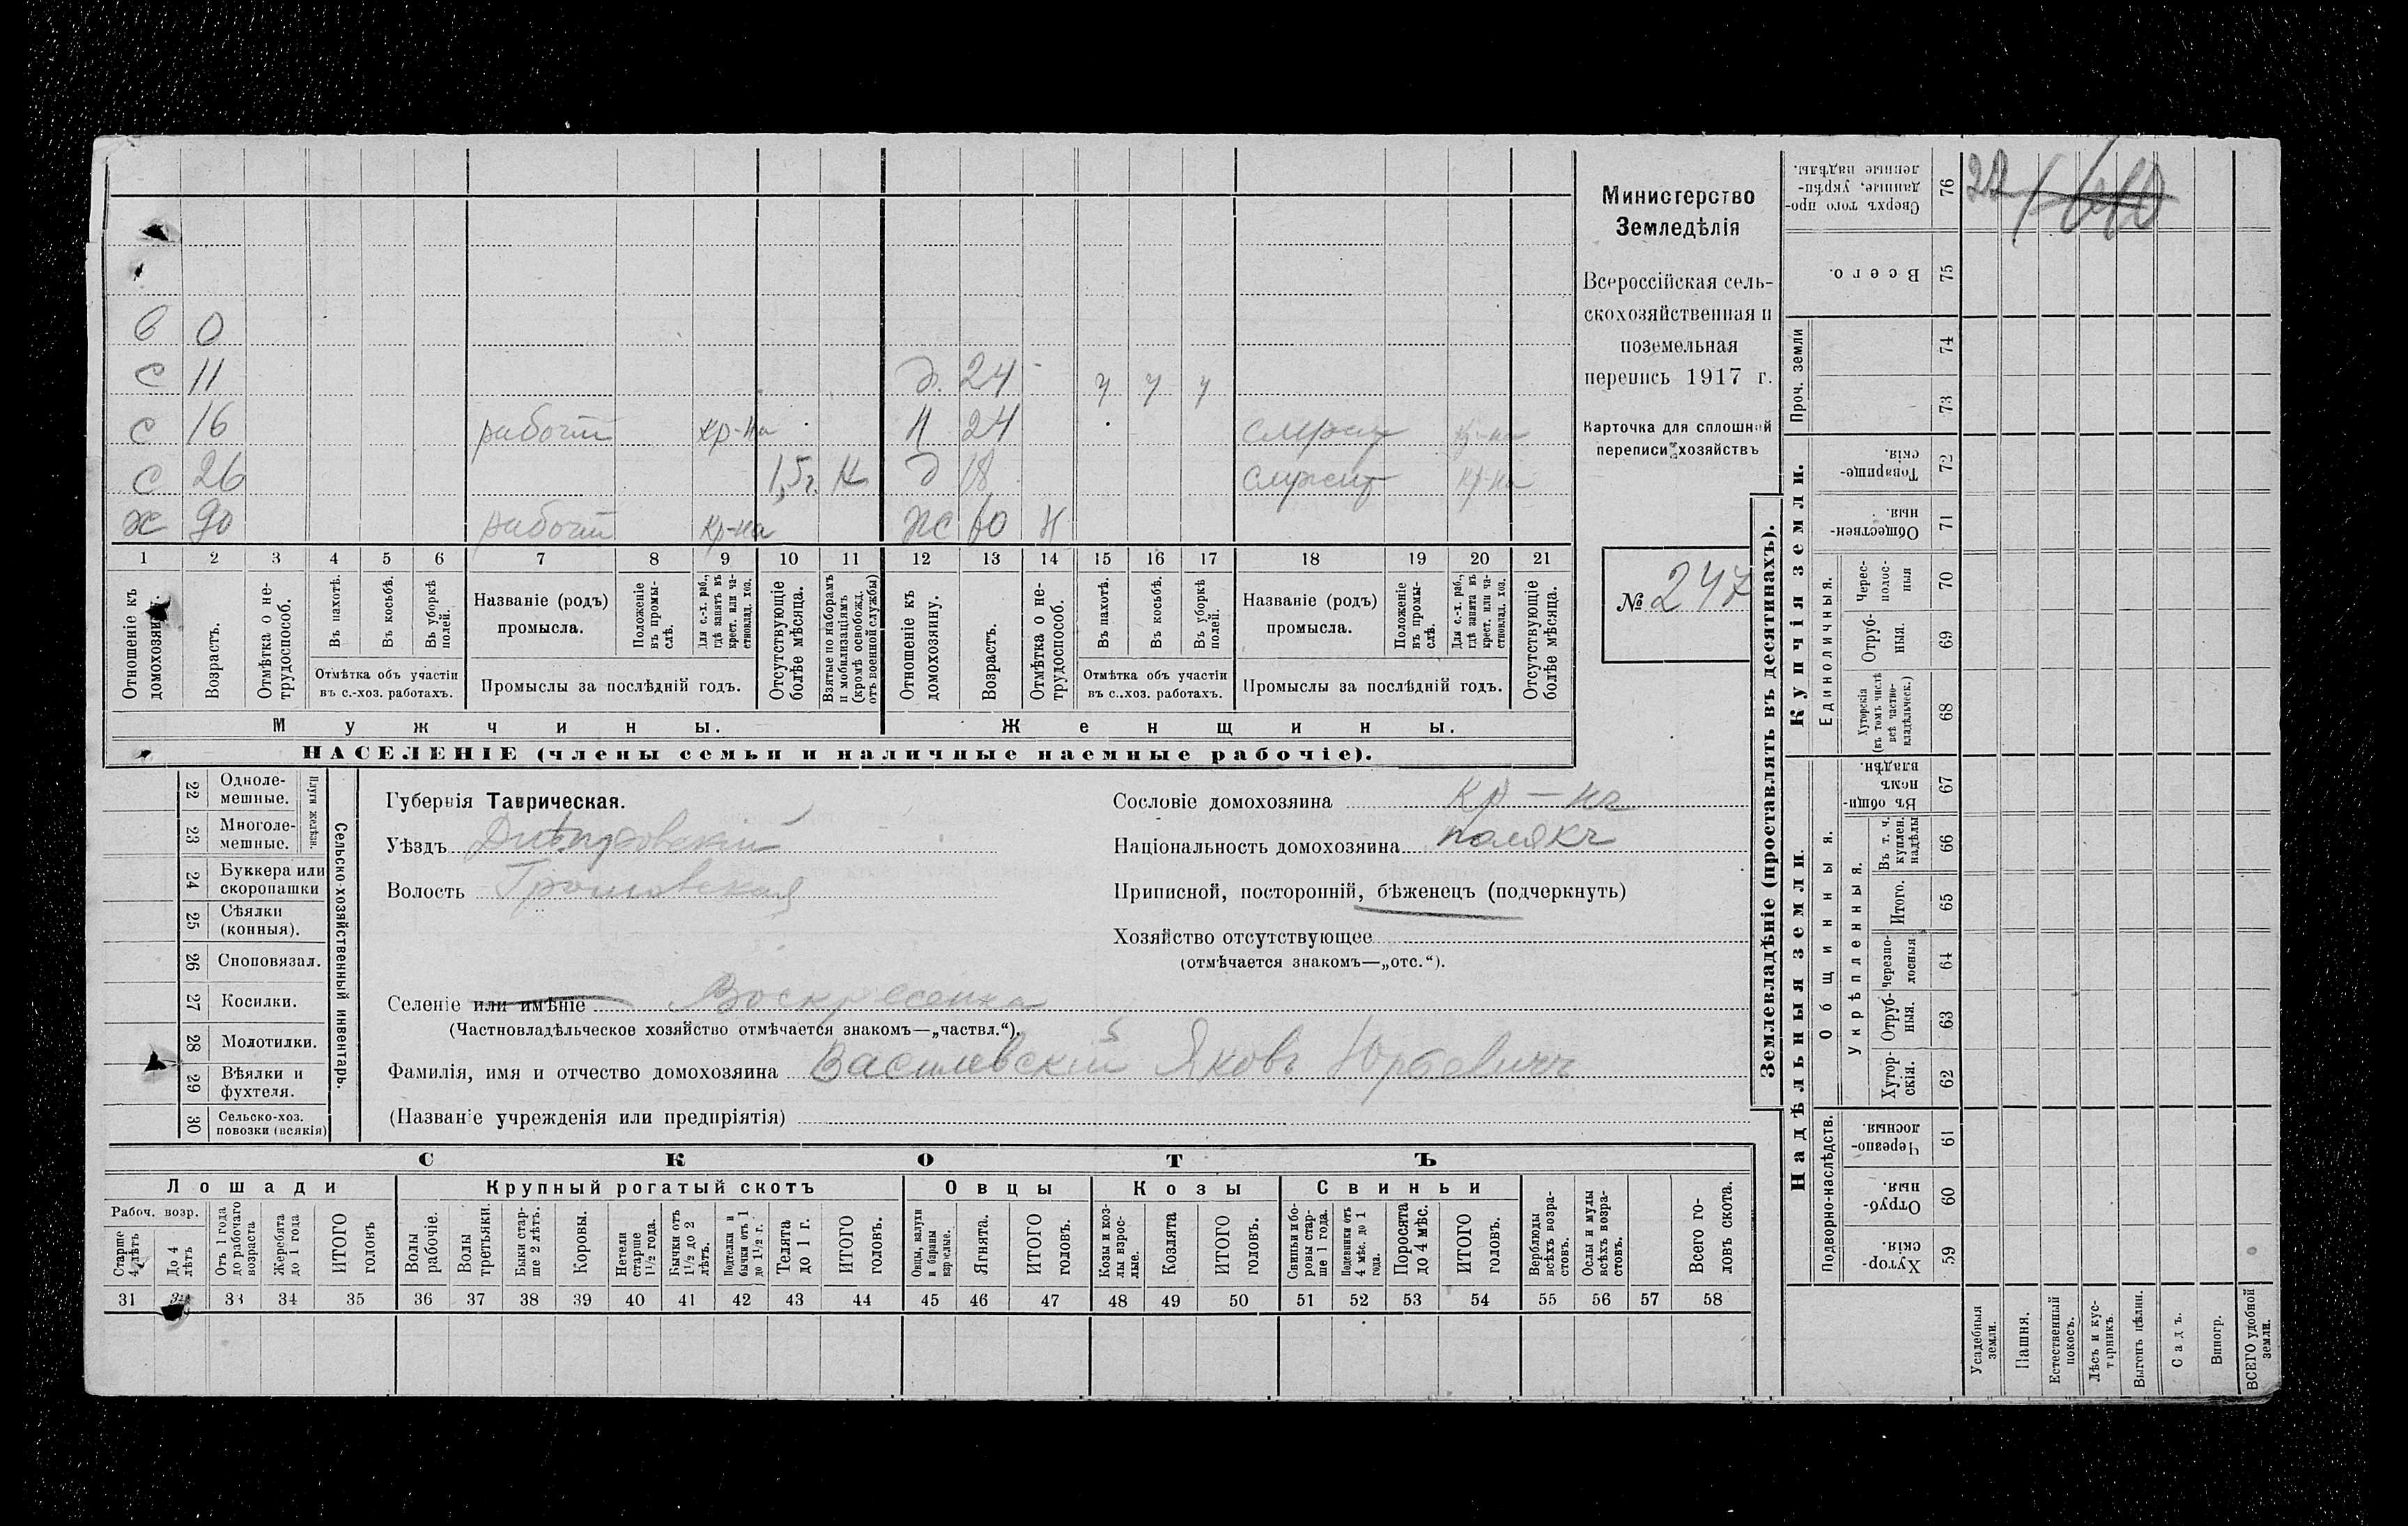 в 0
с 11 д. 24 у у у
с 16 рабочій кр-на Н 24 служит кр-на
с 26 1,5 г. К д 18 служит кр-на
х 90 рабочій кр-на ж 60 Н
1 2 3 4 5 6 7 8 9 10 11 12 13 14 15 16 17 18 19 20 21
Отношеніе къ домохозяину.
Возрастъ.
Отмѣтка о нетрудоспособ.
Въ пахотѣ.
Въ косьбѣ.
Въ уборкѣ полей.
Отмѣтка объ участіи
въ с.-хоз. работахъ.
Названіе (родъ)
промысла.
Положеніе въ промыслѣ.
Для с.-х. раб., гдѣ занятъ въ крест. или частновлад. хоз.
Промыслы за послѣдній годъ.
Отсутствующіе болѣе мѣсяца.
Взятые по наборамъ и мобилизаціямъ (кромѣ освобожд. отъ военной службы)
Отношеніе къ домохозяину.
Возрастъ.
Отмѣтка о нетрудоспособ.
Въ пахотѣ.
Въ косьбѣ.
Въ уборкѣ полей.
Отмѣтка объ участіи
въ с.-хоз. работахъ.
Названіе (родъ)
промысла.
Положеніе въ промыслѣ.
Для с.-х. раб., гдѣ занята въ крест. или частновлад. хоз.
Промыслы за послѣдній годъ.
Отсутствующіе болѣе мѣсяца.
Мужчины. Женщины.
НАСЕЛЕНІЕ (члены семьи и наличные наемные рабочіе).
Министерство
Земледѣлія
Всероссійская сель-
скохозяйственная и
поземельная
перепись 1917 г.
Карточка для сплошной
переписи хозяйствъ
№ 247
22 Однолемешные.
23 Многолемешные.
Плуги желѣзн.
24 Буккера или скоропашки
25 Сѣялки (конныя).
26 Сноповязал.
27 Косилки.
28 Молотилки.
29 Вѣялки и фухтеля.
30 Сельско-хоз. повозки (всякія)
Сельско-хозяйственный инвентарь.
Губернія Таврическая.
Уѣздъ Днѣпровскій
Волость
Сословіе домохозяина кр-нъ
Національность домохозяина полякъ
Приписной, посторонній, бѣженецъ (подчеркнуть)
Хозяйство отсутствующее
(отмѣчается знакомъ—„отс.“).
Селеніе или имѣніе Воскресенка
(Частновладѣльческое хозяйство отмѣчается знакомъ—„частвл.“).
Фамилія, имя и отчество домохозяина Василевскій Яковъ Юрьевичъ
(Названіе учрежденія или предпріятія)
СКОТЪ
Лошади Крупный рогатый скотъ Овцы Козы Свиньи
Рабоч. возр.
Старше 4 лѣтъ
До 4 лѣтъ
Отъ 1 года до рабочаго возраста
Жеребята до 1 года
ИТОГО головъ
Волы рабочіе.
Волы третьяки.
Быки старше 2 лѣтъ.
Коровы.
Нетели старше 1½ года.
Бычки отъ 1½ до 2 лѣтъ.
Подтелки и бычки отъ 1 до 1½ г.
Телята до 1 г.
ИТОГО головъ.
Овцы, валухи и бараны взрослые.
Ягнята.
ИТОГО головъ.
Козы и козлы взрослые.
Козлята
ИТОГО головъ.
Свиньи и боровы старше 1 года.
Подсвинки отъ 4 мѣс. до 1 года.
Поросята до 4 мѣс.
ИТОГО головъ.
Верблюды всѣхъ возрастовъ.
Ослы и мулы всѣхъ возрастовъ.
Всего головъ скота.
31 32 33 34 35 36 37 38 39 40 41 42 43 44 45 46 47 48 49 50 51 52 53 54 55 56 57 58
Землевладѣніе (проставлять въ десятинахъ).
Сверхъ того проданные, укрѣпленные надѣлы. 76 22
Всего. 75
Проч. земли 74 73
Купчія земли.
Товарищескія. 72
Общественныя. 71
Единоличныя.
Чересполосныя 70
Отрубныя. 69
Хуторскія (въ томъ числѣ всѣ частновладѣльческ.) 68
Надѣльныя земли
Общинныя.
Въ общинномъ владѣн. 67
Укрѣпленныя.
Въ т. ч. куплен. надѣлы 66
Итого. 65
Черезполосныя 64
Отрубныя. 63
Хуторскія. 62
Подворно-наслѣдств.
Черезполосныя. 61
Отрубныя. 60
Хуторскія. 59
Усадебныя земли.
Пашня.
Естественный покосъ.
Лѣсъ и кустарникъ.
Выгонъ цѣлин.
Садъ.
Виногр.
ВСЕГО удобной земли.